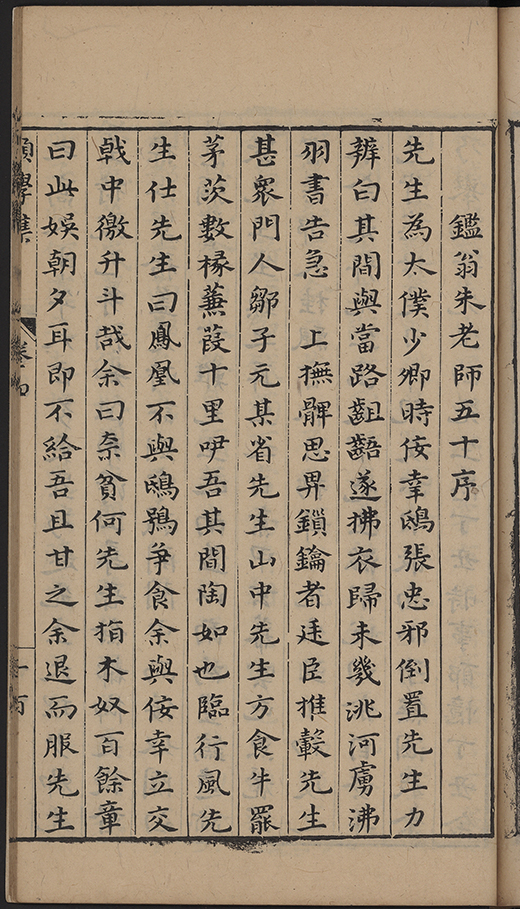 鑑翁朱老師五十序
先生為太僕少卿時佞幸鴟張忠邪倒置先生力
辨白其間與當路齟齬遂拂衣歸未幾洮河虜沸
羽書告急　上撫髀思畀鎖鑰者廷臣推轂先生
甚衆門人鄒子元某省先生山中先生方食牛罷
茅茨數椽蒹葭十里咿吾其間陶如也臨行風先
生仕先生曰鳳凰不與鴟鴞爭食余與佞幸立交
戟中徼升斗哉余曰柰貧何先生指木奴百餘章
曰此娛朝夕耳即不給吾且甘之余退而服先生
願學集
卷四
一百